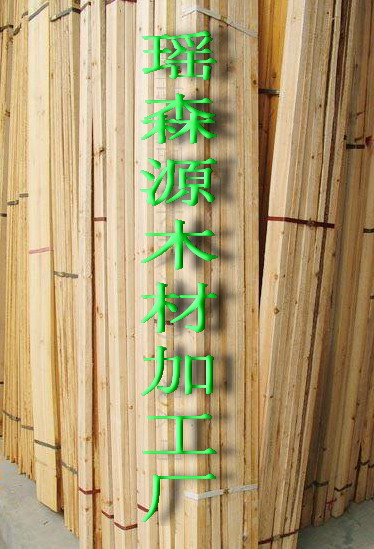 瑶森源木材加工厂